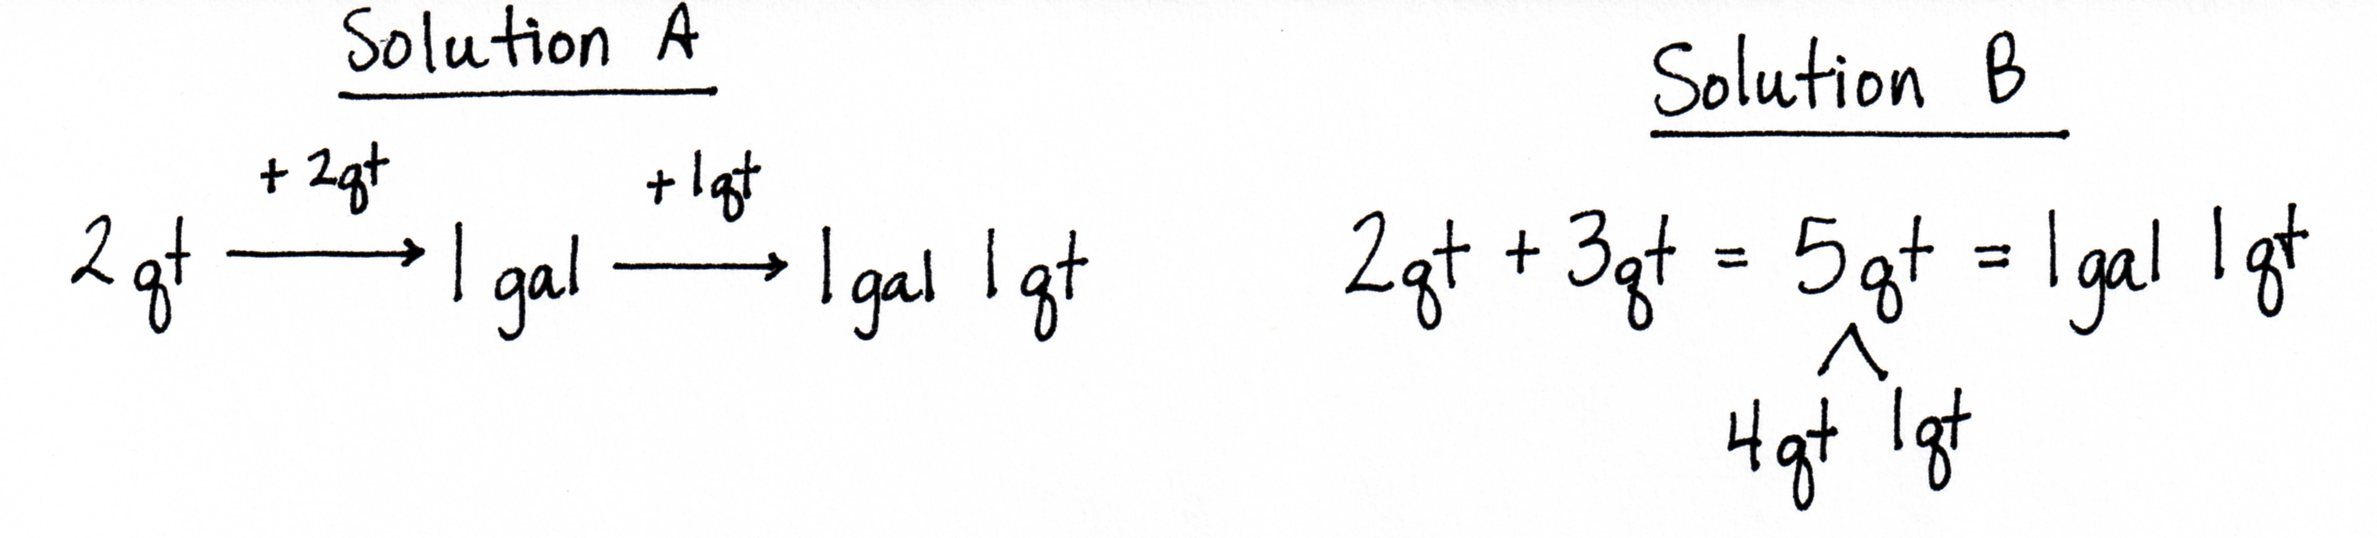 Solution A
+ 2qt + 1qt
2qt → 1 gal → 1 gal 1 qt
Solution B
2qt + 3qt = 5qt = 1gal 1qt
4qt 1qt